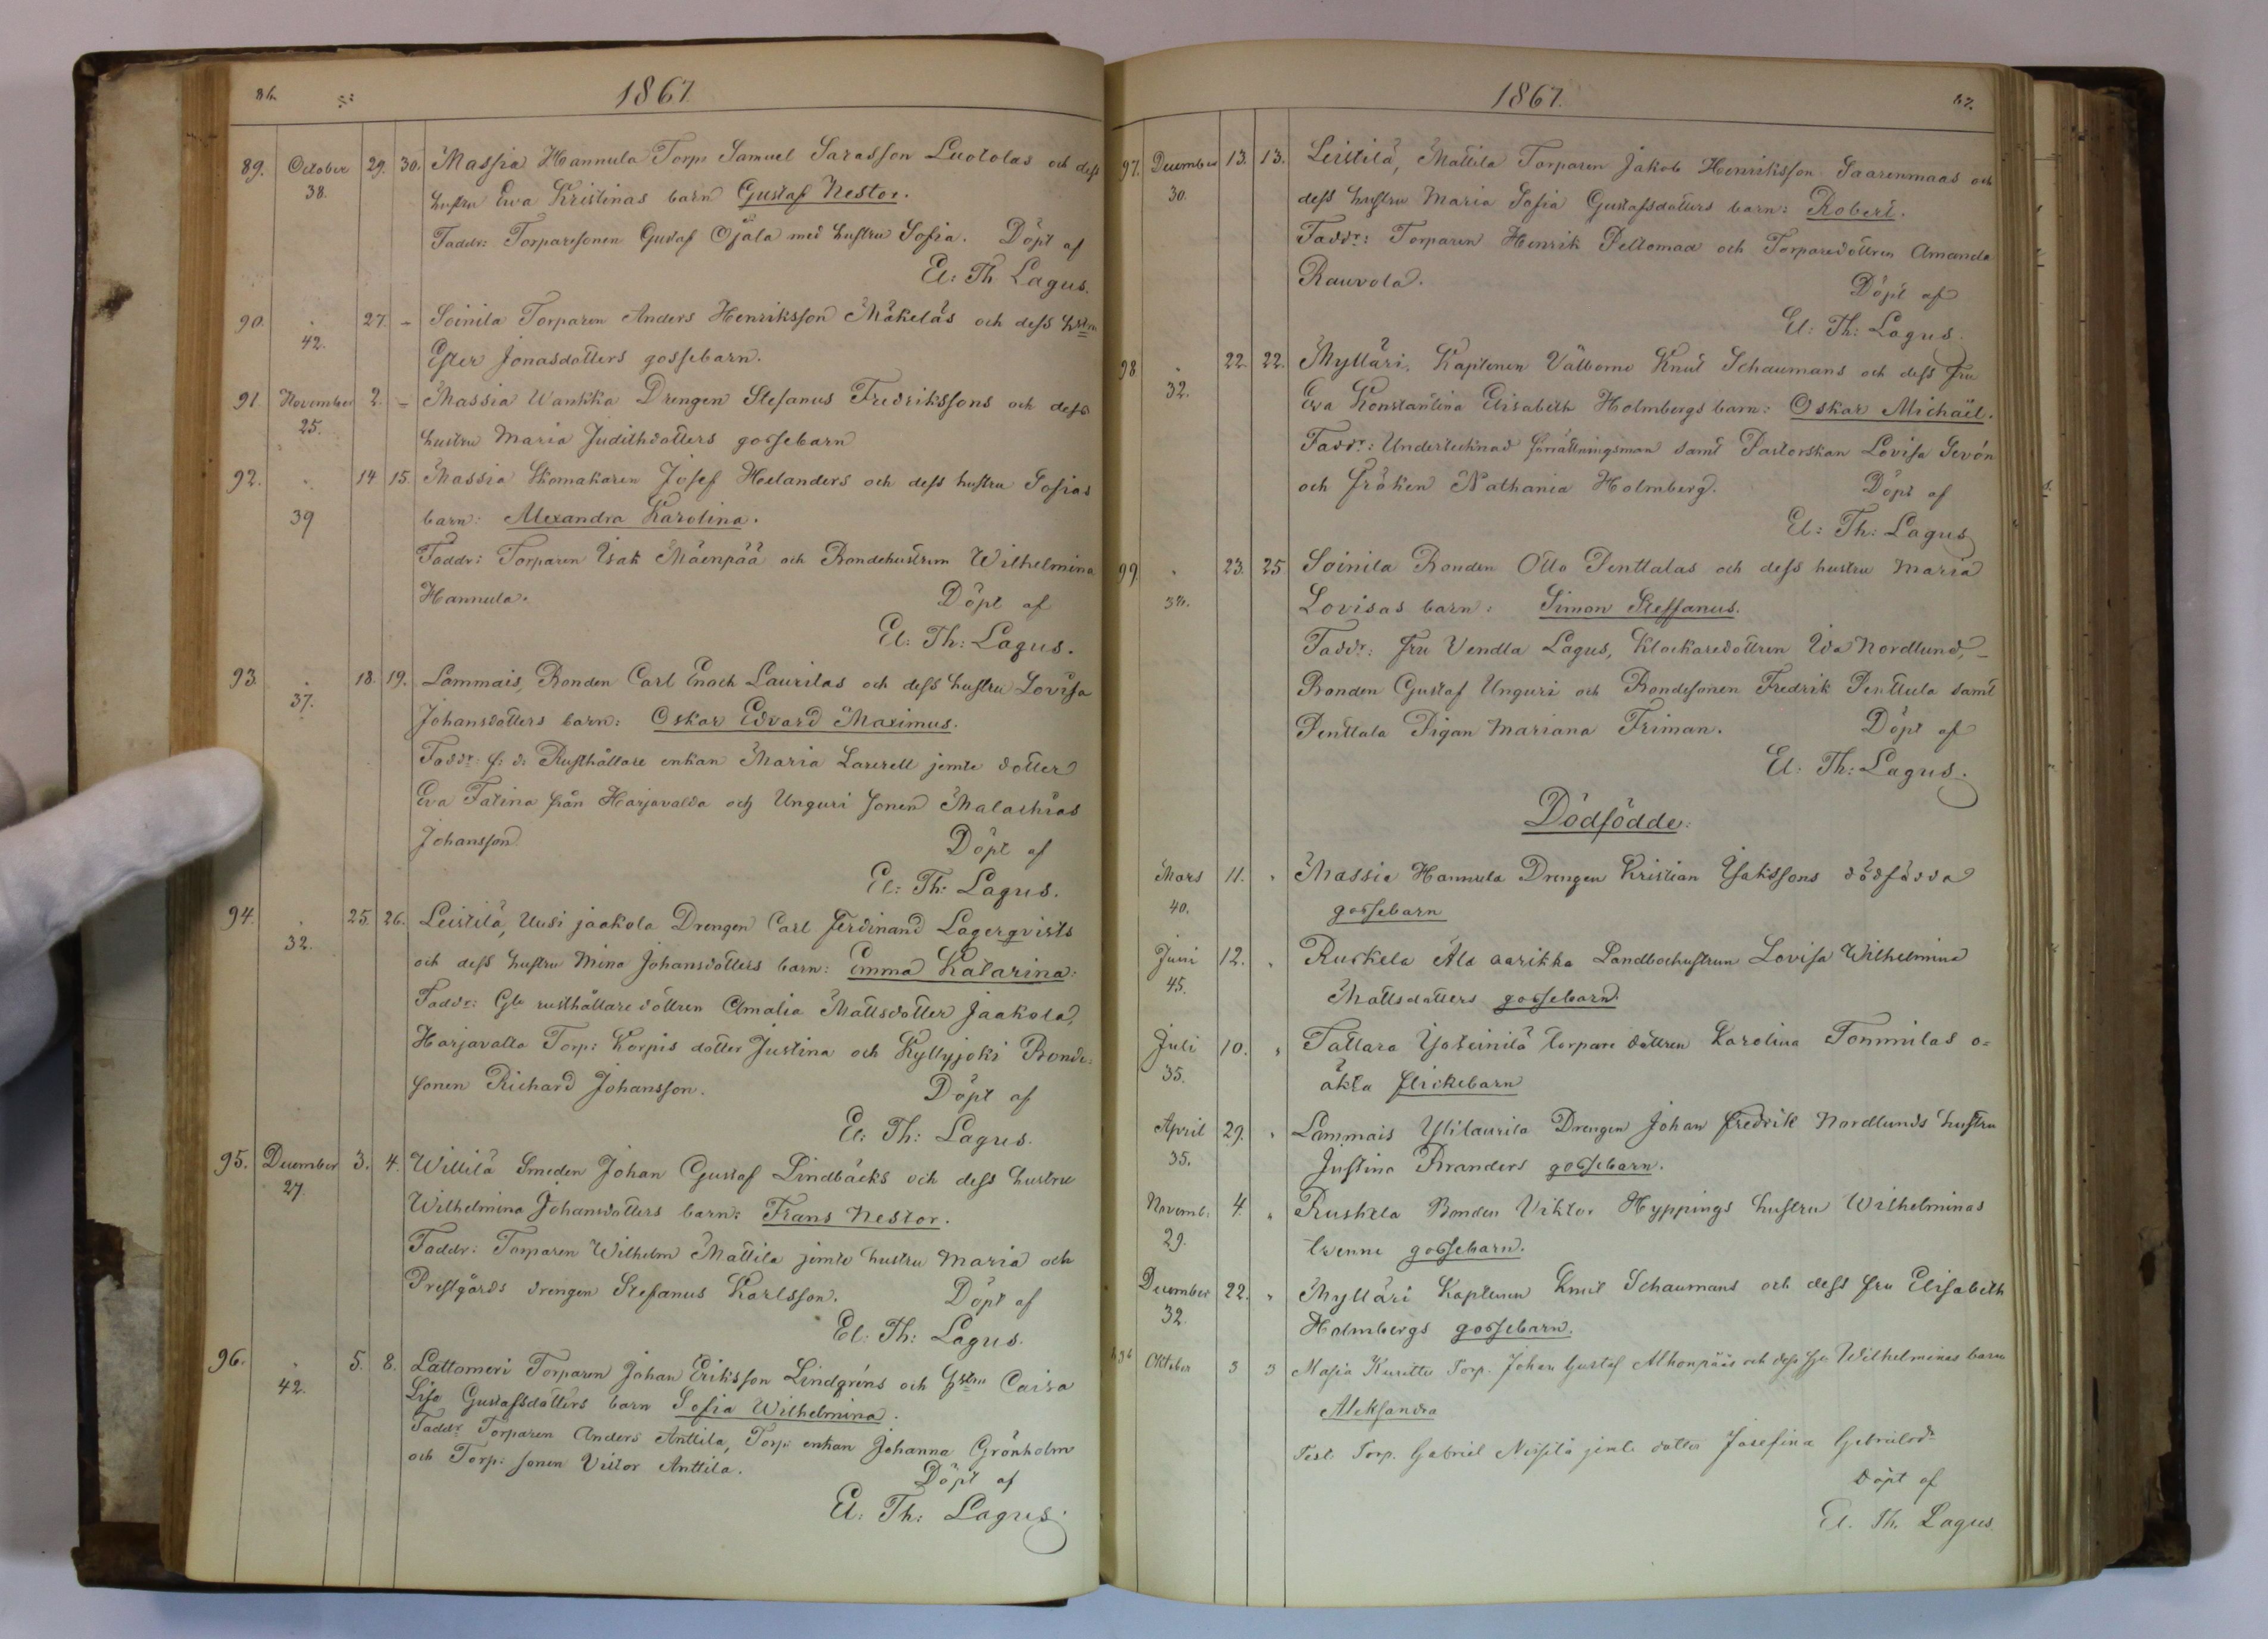 86.
1867.
89. October 29. 30. Massia Hannula Torp: Samuel Sarasson Luotolas och dess
38. hustru Ewa Kristinas barn Gustaf Nestor.
Faddr: Torparesonen Gustaf Ojala med hustru Sofia. Döpt af
El: Th Lagus.
90. " 27. – Soinila Torparen Anders Henriksson Mäkeläs och dess hstru
42. Ester Jonasdotters gossebarn.
91. November 2. – Massia Wankka Drengen Stefanus Fredrikssons och dess
25. hustru Maria Judithdotters gossebarn
92. " 14. 15. Massia Skomakaren Josef Helanders och dess hustru Sofias
39 barn: Alexandra Karolina.
Faddr: Torparen Isak Mäenpää och Bondehustrun Wilhelmina
Hannula. Döpt af
El: Th: Lagus.
93. " 18. 19. Lammais, Bonden Carl Enoch Laurilas och dess hustru Lovisa
37. Johansdotters barn: Oskar Edvard Maximus.
Faddr: f: d: Rusthållare enkan Maria Laxell jemte dotter
Eva Fatina från Harjavalda och Unguri sonen Malachias
Johansson Döpt af
El: Th: Lagus.
94. " 25. 26. Leistilä, Uusi jaakola Drengen Carl Ferdinand Lagerqvists
32. och dess hustru Mina Johansdotters barn: Emma Katarina.
Faddr: Gle rusthållare dottren Amalia Mattsdotter Jaakola,
Harjavalta Torp: Korpis dotter Justina och Kyllyjoki Bonde-
sonen Richard Johansson. Döpt af
El: Th: Lagus.
95. December 3. 4. Willilä Smeden Johan Gustaf Lindbäcks och dess hustru
27. Wilhelmina Johansdotters barn: Frans Nestor.
Faddr: Torparen Wilhelm Mattila jemte hustru Maria och
Prestgårds drengen Stefanus Karlsson. Döpt af
El: Th: Lagus.
96. " 5. 8. Lattomeri Torparen Johan Eriksson Lindgréns och Hstru Caisa
42. Lisa Gustafsdotters barn Sofia Wilhelmina.
Faddr Torparen Anders Anttila, Torp: enkan Johanna Grönholm
och Torp: sonen Victor Anttila. Döpt af
El: Th: Lagus.
1867.
87.
97. December 13. 13. Leistilä, Mattila Torparen Jakob Henriksson Saarenmaas och
30. dess hustru Maria Sofia Gustafsdotters barn: Robert.
Faddr: Torparen Henrik Peltomaa och Torparedottren Amanda
Rauvola. Döpt af
El: Th: Lagus.
98. " 22. 22. Mylläri, Kaptenen Välborne Knut Schaumans och dess Fru
32. Eva Konstantina Elisabeth Holmbergs barn: Oskar Michaël.
Faddr: Undertecknad förrättningsman samt Pastorskan Lovisa Sevón
och Fröken Nathania Holmberg. Döpt af
El: Th: Lagus
99. " 23. 25 Soinila Bonden Otto Penttalas och dess hustru Maria
Lovisas barn: Simon Steffanus.
Faddr: Fru Vendla Lagus, Klockaredottren Ida Nordlund, –
Bonden Gustaf Unguri och Bondesonen Fredrik Penttula samt
Penttala Pigan Mariana Friman. Döpt af
El: Th: Lagus.
Dödfödde:
Mars 11. " Massia Hannula Drengen Kristian Isakssons dödfödda
40. gossebarn
Juni 12. " Ruskela Ala aarikka Landbohustrun Lovisa Wilhelmina
45. Mattsdotters gossebarn.
Juli 10. " Tattara Yoteinilä torpare dottren Karolina Tommilas o=
35. äkta flickebarn
April 29. " Lammais Ylilaurila Drengen Johan Fredrik Nordlunds hustru
35. Justina Branders gossebarn.
Novemb: 4. " Ruskela Bonden Viktor Hyppings hustru Wilhelminas
29. tvenne gossebarn.
December 22. " Mylläri Kaptenen Knut Schaumans och dess fru Elisabeth
32. Holmbergs gossebarn.
Oktober 3 3 Masia Kuritta Torp. Johan Gustaf Alhonpääs och dess Wilhelminas barn
Aleksandra
Test. Torp. Gabriel Nissilä jemte dotter Josefina Gabrielsdr
Döpt af
El. Th. Lagus